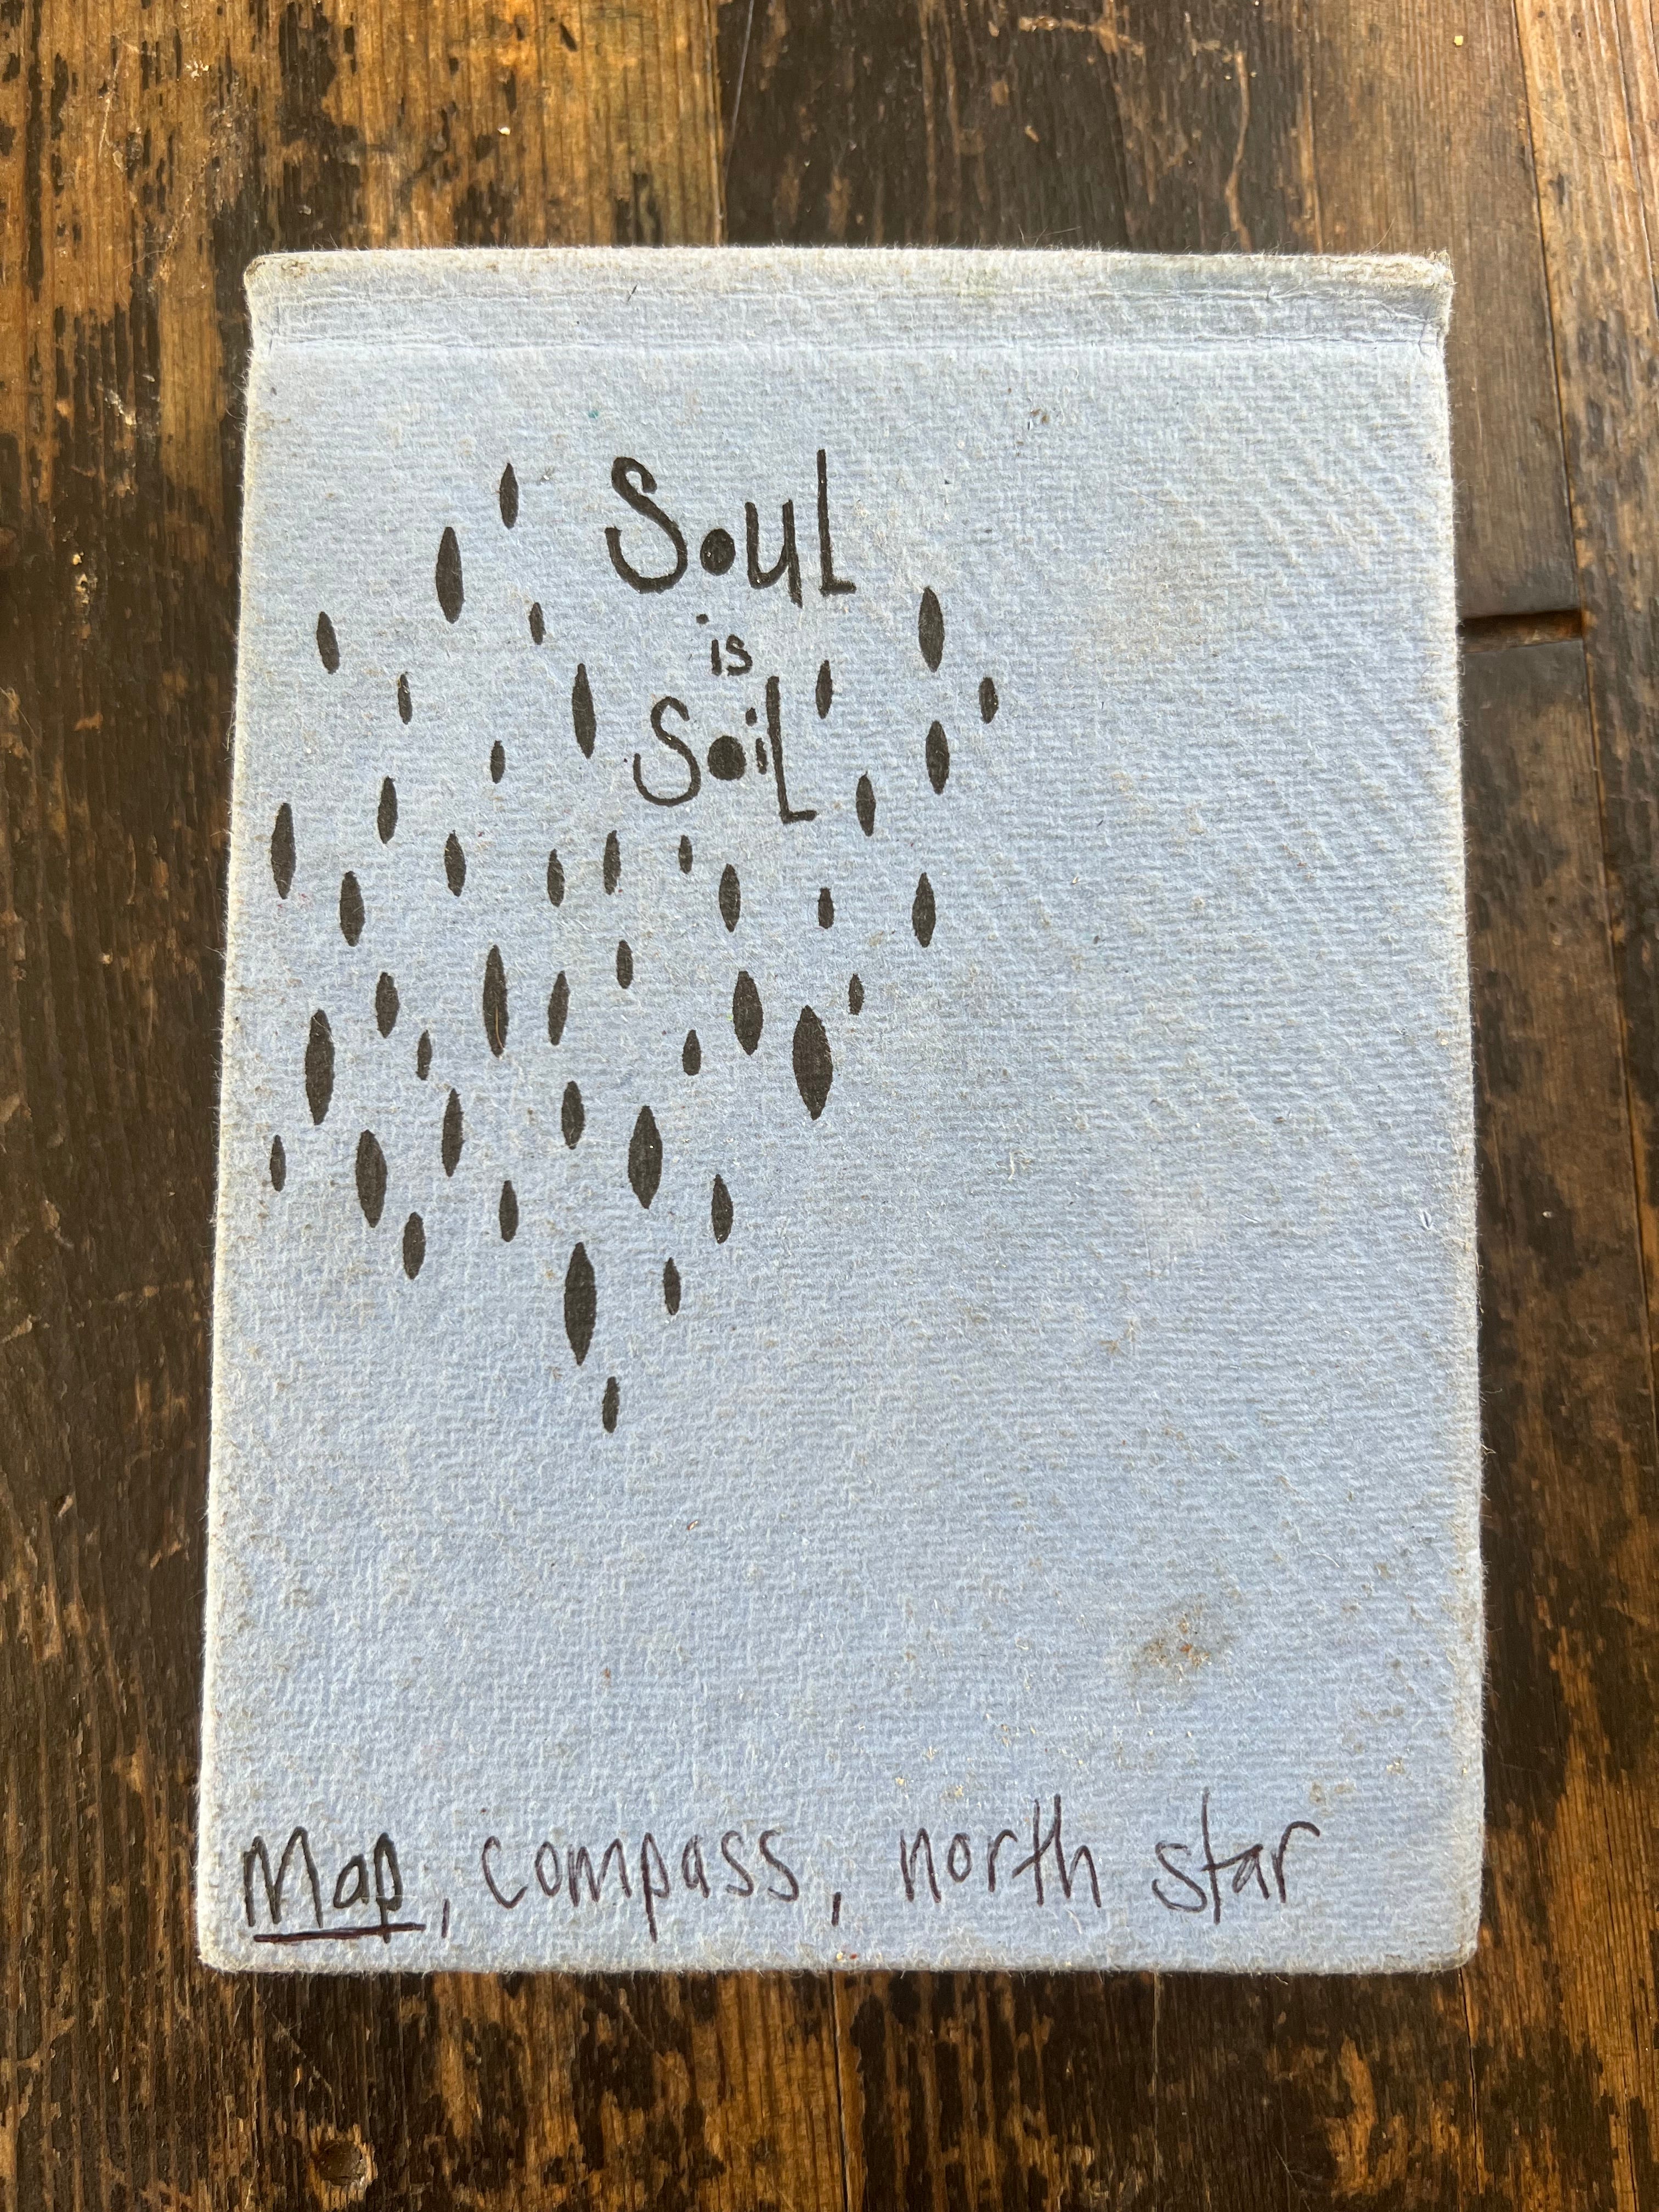 Soul
is
Soil
Map, compass, north star